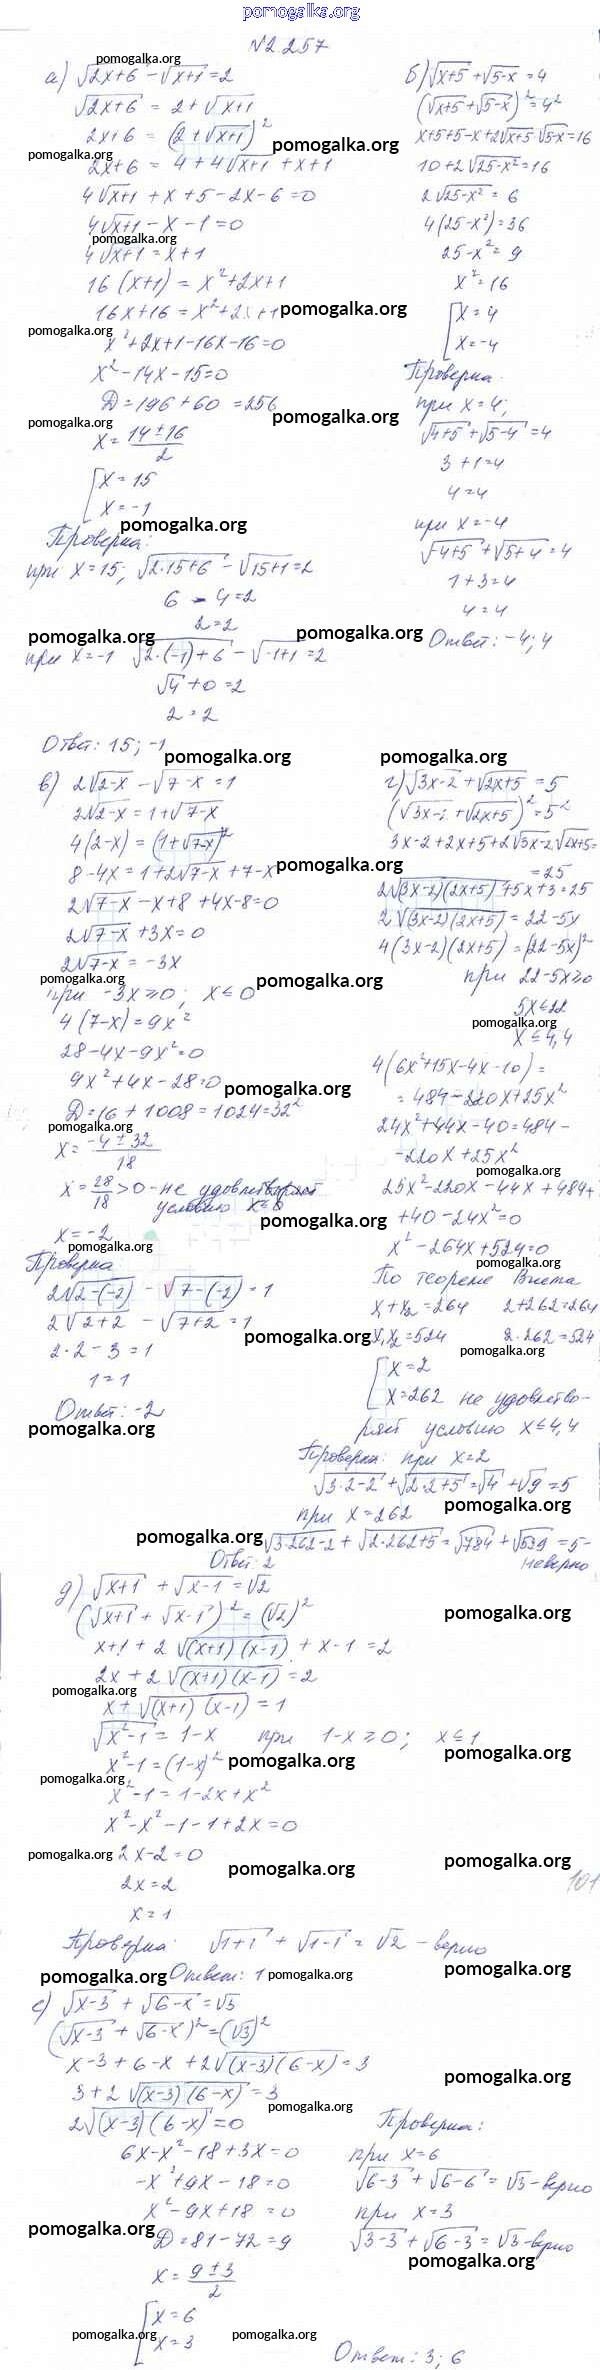 pomogalka.org
№2.257
а) √(2x+6) - √(x+1) = 2
√(2x+6) = 2 + √(x+1)
2x+6 = (2+√(x+1))²
2x+6 = 4 + 4√(x+1) + x+1
4√(x+1) + x + 5 - 2x - 6 = 0
4√(x+1) - x - 1 = 0
4√(x+1) = x+1
16(x+1) = x²+2x+1
16x+16 = x²+2x+1
x²+2x+1-16x-16=0
x²-14x-15=0
D=196+60=256
x = (14±16)/2
[x=15
x=-1
Проверка:
при x=15; √(2·15+6) - √(15+1) = 2
6 - 4=2
2=2
при x=-1 √(2·(-1)+6) - √(-1+1) = 2
√4+0=2
2=2
Ответ: 15; -1
б) √(x+5) + √(5-x) = 4
(√(x+5) + √(5-x))² = 4²
x+5+5-x+2√(x+5)·√(5-x)=16
10+2√(25-x²)=16
2√(25-x²) = 6
4(25-x²)=36
25-x²=9
x²=16
[x=4
x=-4
Проверка.
при x=4;
√(4+5) + √(5-4) = 4
3+1=4
4=4
при x=-4
√(-4+5) + √(5+4) = 4
1+3=4
4=4
Ответ: -4; 4
в) 2√(2-x) - √(7-x) = 1
2√(2-x) = 1+√(7-x)
4(2-x) = (1+√(7-x))²
8-4x = 1+2√(7-x)+7-x
2√(7-x) - x+8+4x-8=0
2√(7-x) + 3x=0
2√(7-x) = -3x
при -3x≥0; x≤0
4(7-x)=9x²
28-4x-9x²=0
9x²+4x-28=0
D=16+1008=1024=32²
x = (-4±32)/18
x = 28/18 >0 - не удовлетворяет
условию x≤0
x=-2
Проверка
2√(2-(-2)) - √(7-(-2)) = 1
2√(2+2) - √(7+2) = 1
2·2-3=1
1=1
Ответ: -2
г) √(3x-2) + √(2x+5) = 5
(√(3x-2) + √(2x+5))² = 5²
3x-2+2x+5+2√(3x-2)·√(2x+5)=
=25
2√((3x-2)(2x+5)) + 5x+3=25
2√((3x-2)(2x+5)) = 22-5x
4(3x-2)(2x+5) = (22-5x)²
при 22-5x≥0
5x≤22
x≤4,4
4(6x²+15x-4x-10)=
=484-220x+25x²
24x²+44x-40=484-
-220x+25x²
25x²-220x-44x+484+
+40-24x²=0
x²-264x+524=0
По теореме Виета
x₁+x₂=264 2+262=264
x₁x₂=524 2·262=524
[x=2
x=262 не удовлетво-
ряет условию x≤4,4
Проверка: при x=2
√(3·2-2) + √(2·2+5) = √4 + √9 = 5
при x=262
√(3·262-2) + √(2·262+5) = √784 + √539 = 5-
неверно
Ответ: 2
д) √(x+1) + √(x-1) = √2
(√(x+1) + √(x-1))² = (√2)²
x+1+2√((x+1)(x-1)) + x-1=2
2x+2√((x+1)(x-1)) = 2
x+√((x+1)(x-1)) = 1
√(x²-1) = 1-x при 1-x≥0; x≤1
x²-1=(1-x)²
x²-1=1-2x+x²
x²-x²-1-1+2x=0
2x-2=0
2x=2
x=1
101
Проверка: √(1+1) + √(1-1) = √2 - верно
Ответ: 1
е) √(x-3) + √(6-x) = √3
(√(x-3) + √(6-x))² = (√3)²
x-3+6-x+2√((x-3)(6-x)) = 3
3+2√((x-3)(6-x)) = 3
2√((x-3)(6-x)) = 0
6x-x²-18+3x=0
-x²+9x-18=0
x²-9x+18=0
D=81-72=9
x = (9±3)/2
[x=6
x=3
Проверка:
при x=6
√(6-3) + √(6-6) = √3 - верно
при x=3
√(3-3) + √(6-3) = √3 - верно
Ответ: 3; 6